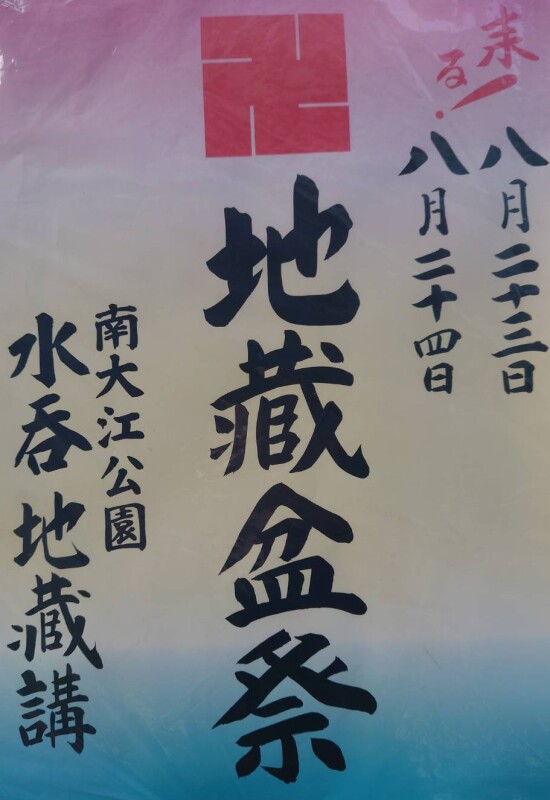 来る!
八月二十三日
八月二十四日
卍
地蔵盆祭
南大江公園
水呑地蔵講